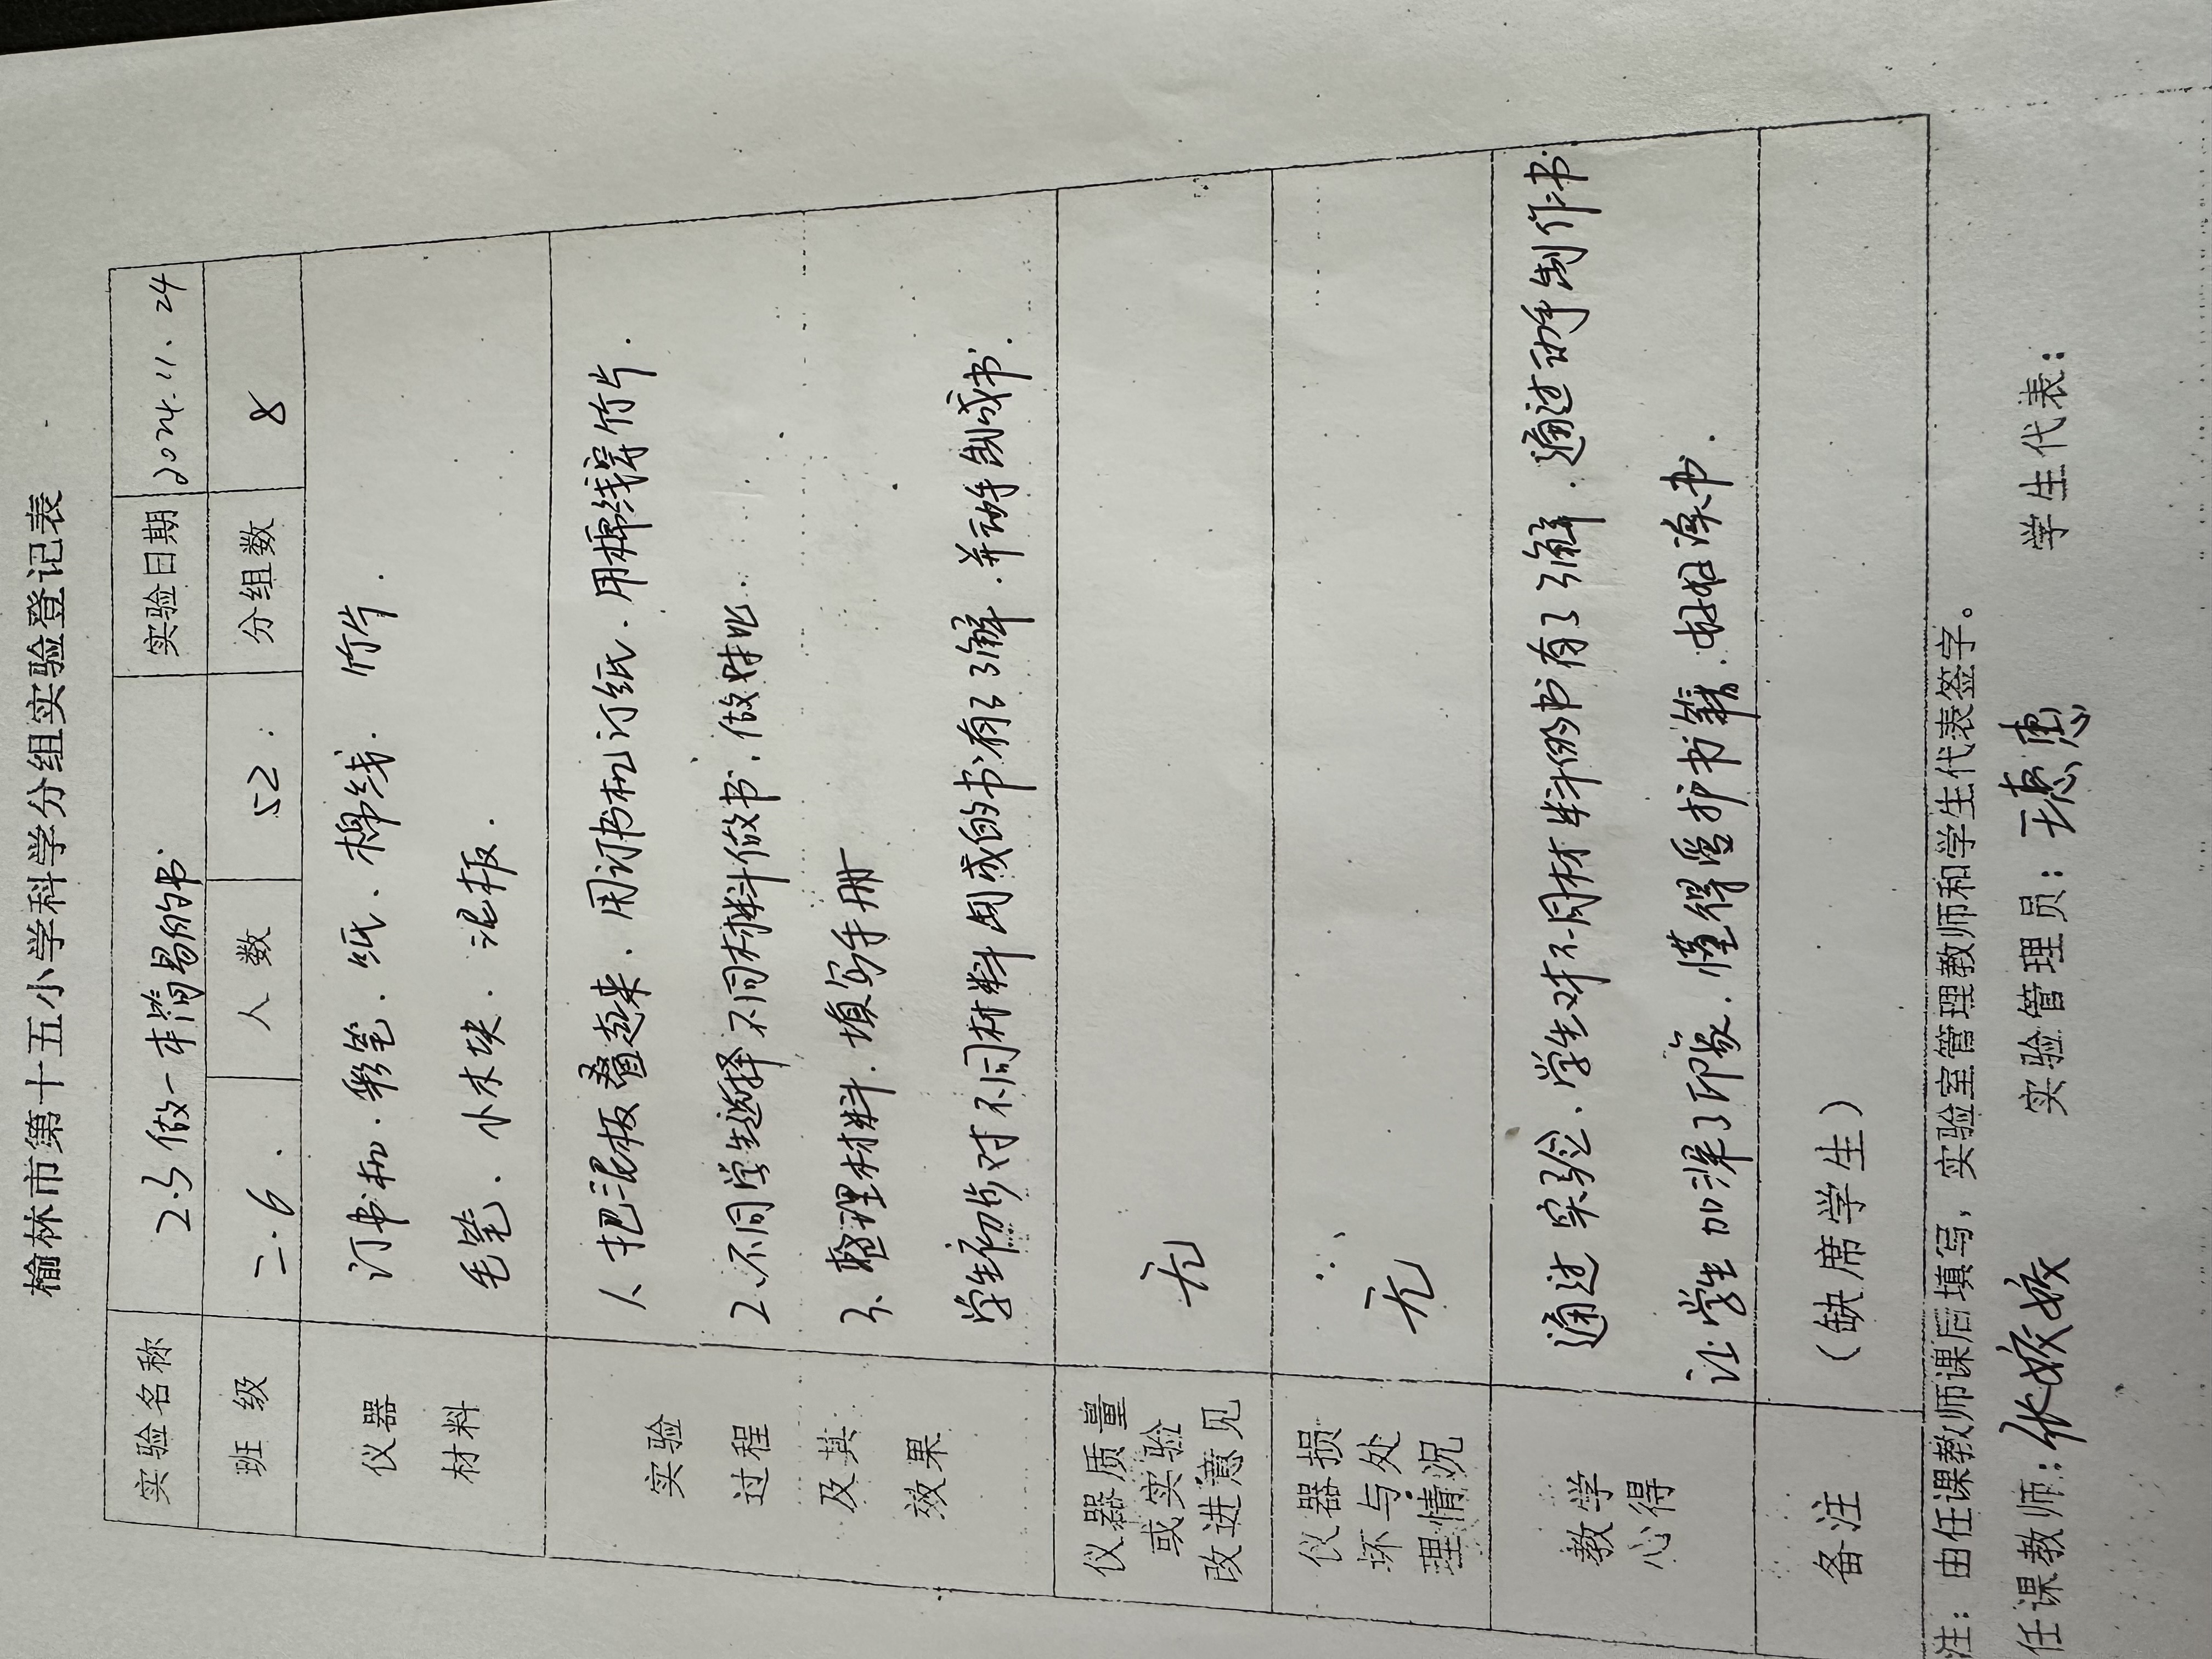 榆林市第十五小学科学分组实验登记表
实验名称 2.3 做一本简易的书 实验日期 2024.11.24
班级 二.6. 人数 52. 分组数 8
仪器材料
订书机.彩笔.纸、棉线.竹片.
毛笔、小木块.泥板.
实验过程及其效果
1、把泥板叠起来、用订书机订纸.用棉线穿竹片.
2、不同学生选择不同材料做书,做对比.
3、整理材料.填写手册
学生初步对不同材料制成的书有了了解.并动手制成书.
仪器质量或实验改进意见 无
仪器损坏与处理情况 无
教学心得
通过实验、学生对不同材料的书有了了解.通过动手制作书
让学生加深了印象.懂得爱护书籍.好好读书.
备注 (缺席学生)
注:由任课教师课后填写,实验室管理教师和学生代表签字。
任课教师:张姣姣 实验管理员:王惠惠 学生代表: